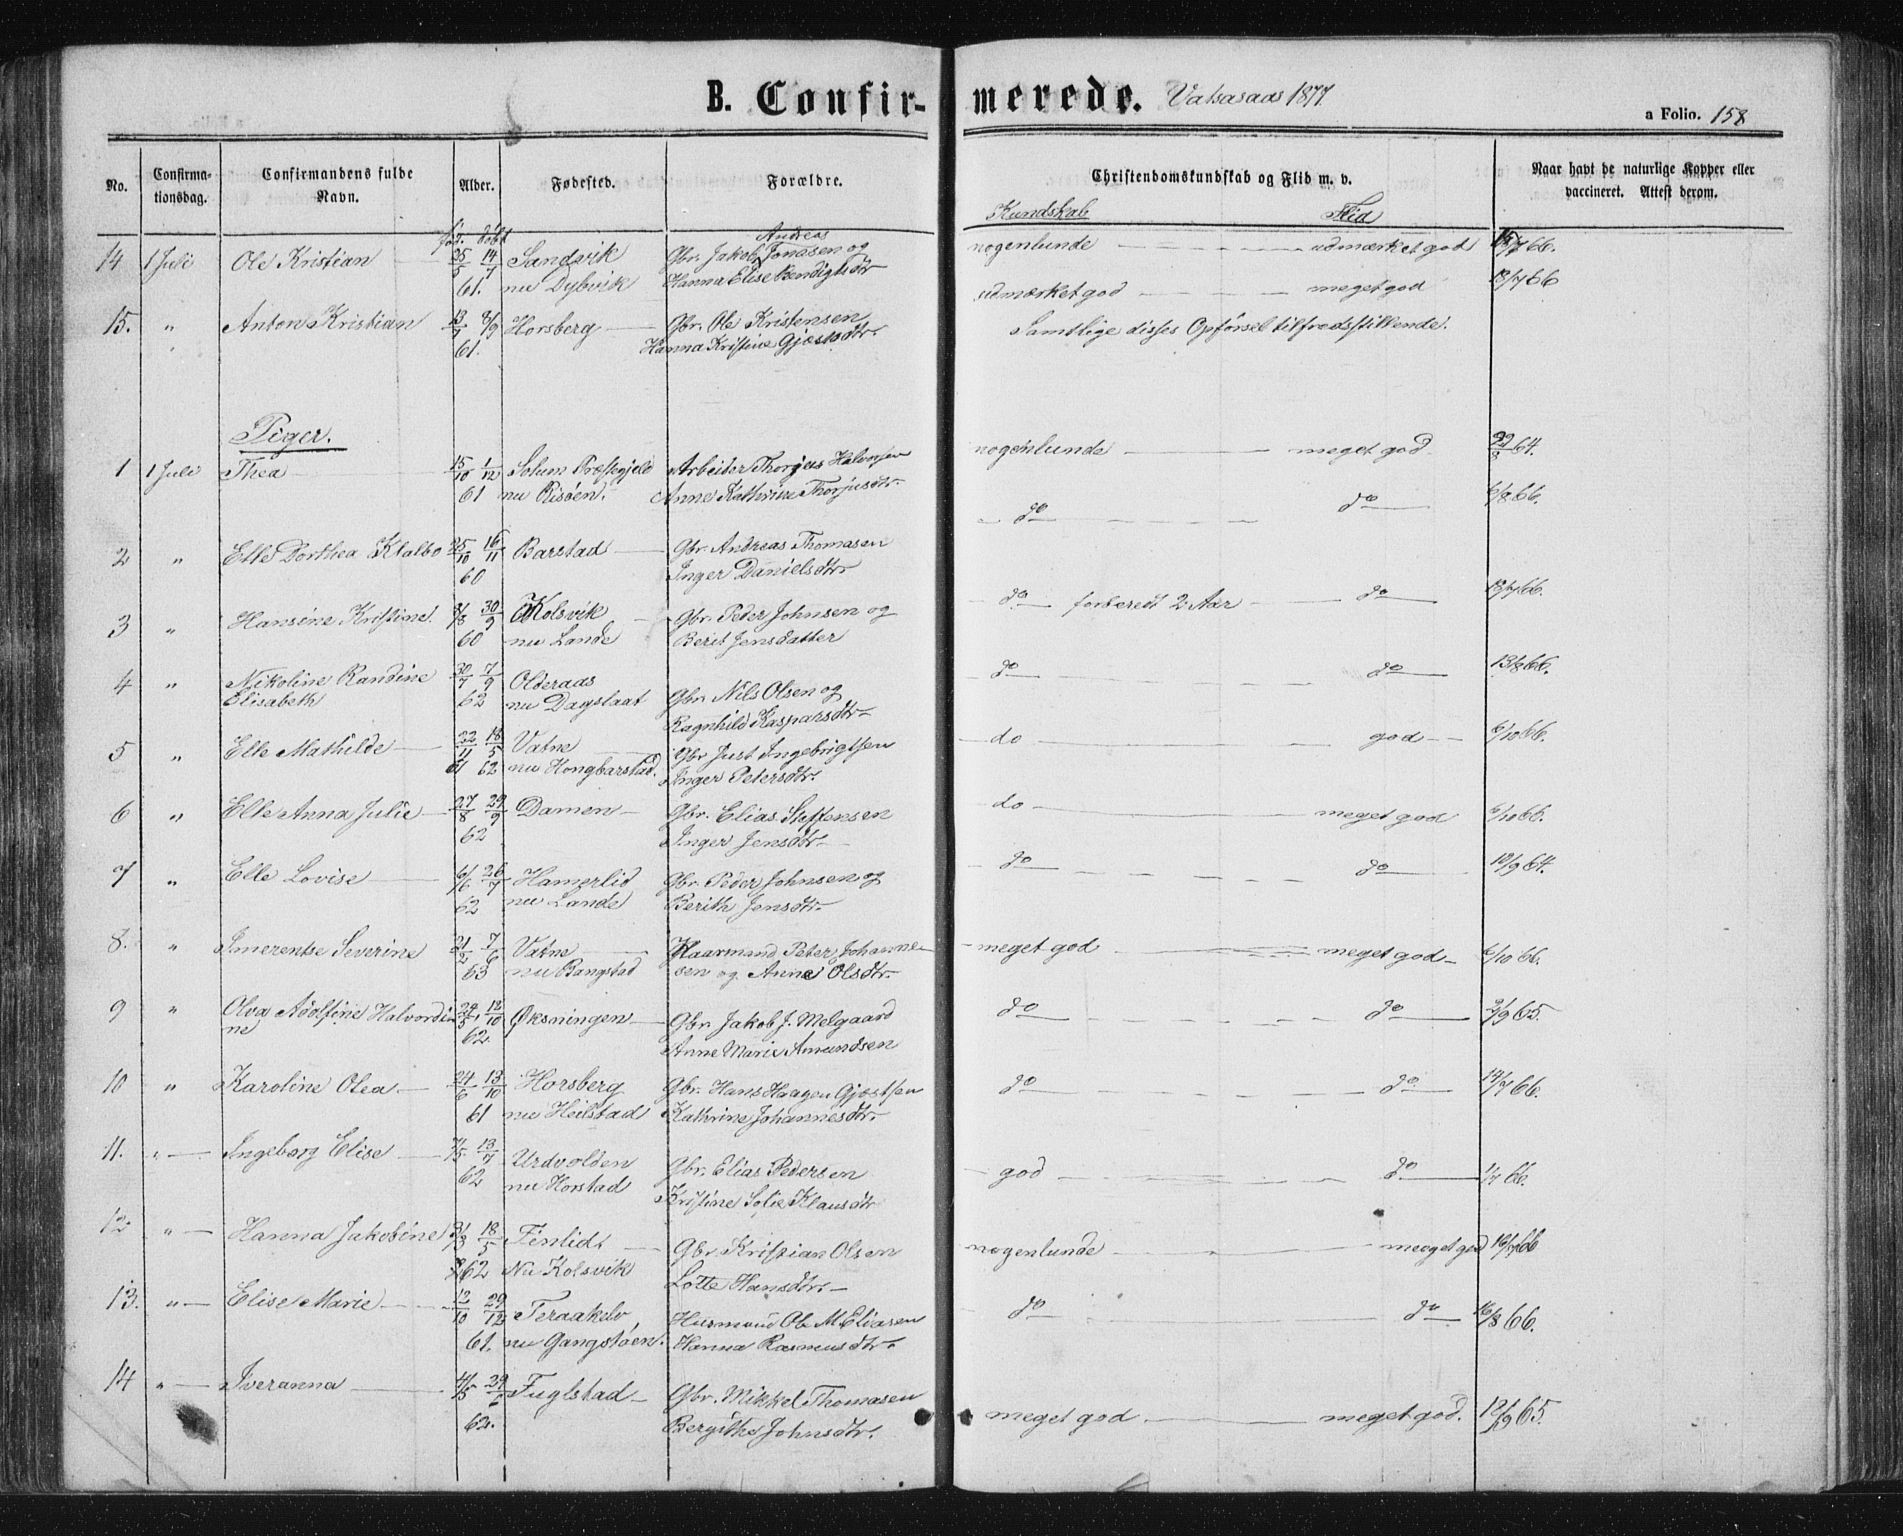 B. Confirmerede. Vatsaaas 1877
a Folio. 158
No. Confirmationsdag. Confirmandens fulde Navn. Alder. Fødested. Forældre. Christendomskundskab og Flid m. v. Naar havt de naturlige Kopper eller vaccineret. Attest derom.
Kundskab Flid
fød. døbt
14 1 Juli Ole Kristian 25/5 14/7 61. Sandvik nu Dybvik Gbr. Jakob Andreas Jonassen og Hanna Elise Bendigtsdtr nogenlunde udmærket god 15/7 66.
15. " Anton Kristian 13/7 8/9 61. Horsberg Gbr. Ole Kristensen Hanna Kristine Gjøstsdtr. udmærket god meget god 18/7 66
Samtlige disses Opførsel tilfredsstillende.
Piger.
1 1 Juli Thea 15/10 1/12 61 Solum Præstegjeld nu Risöen. Arbeider Thorjus Halvorsen Anne Kathrine Thorjusdtr. nogenlunde meget god 22/8 64.
2 " Elle Dorthea Klalbo 25/10 16/11 60 Barstad Gbr. Andreas Thomasen Inger Danielsdtr do do 6/8 66.
3 " Hansine Kristine. 8/8 30/9 60 Kolsvik nu Lande Gbr. Peder Johnsen og Berit Jensdatter do forberedt 2 Aar do 18/7 66.
4 " Nikoline Randine Elisabeth 30/7 7/9 62 Olderaas nu Dagslaat Gbr. Nils Olsen og Ragnhild Kaspersdtr do do 13/8 66.
5 " Elle Mathilde 22/11 61 18/5 62 Vatne nu Hongbarstad. Gbr Just Ingebrigtsen Inger Petersdtr. do god 6/10 66.
6 " Elle Anna Julie 27/8 29/9 62 Damen Gbr. Elias Steffensen Inger Jensdtr do meget god 6/10 66.
7 " Elle Lovise 6/6 26/7 62 Hamerlid nu Lande Gbr. Peder Johnsen og Berith Jensdtr. do do 10/9 64.
8. " Imerentse Severine 21/2 7/6 63 Vatne nu Bangstad Haarmand Peter Johannesen og Anne Olsdtr meget god meget god 6/10 66.
9 " Olva Adolfine Halvordine 29/5 12/10 62. Øksningen Gbr. Jakob J. Melgaard Anne Marie Amundsen do do 2/9 65.
10 " Karoline Olea 24/6 13/10 61 Horsberg nu Heilstad Gbr. Hans Haagen Gjøstsen Kathrine Johannesdtr. do do 14/7 66.
11. " Ingeborg Elise 13/7 62 Urdvolden nu Horstad Gbr. Elias Pedersen Kristine Sofie Klausdtr god do 1/7 66.
12 " Hanna Jakobine 18/5 62 Finlid Nu Kolsvik Gbr. Kristian Olsen Lotte Hansdtr. nogenlunde meget god 16/7 66
13. " Elise Marie 12/10 29/12 61. Teraakelv nu Gangstöen. Husmand Ole M Eliasen Hanna Rasmusdtr do do 16/8 66.
14 " Iveranna 4/5 62. Fuglstad Gbr. Mikkel Thomasen Bergithe Johnsdtr. meget god meget god. 12/9 65.